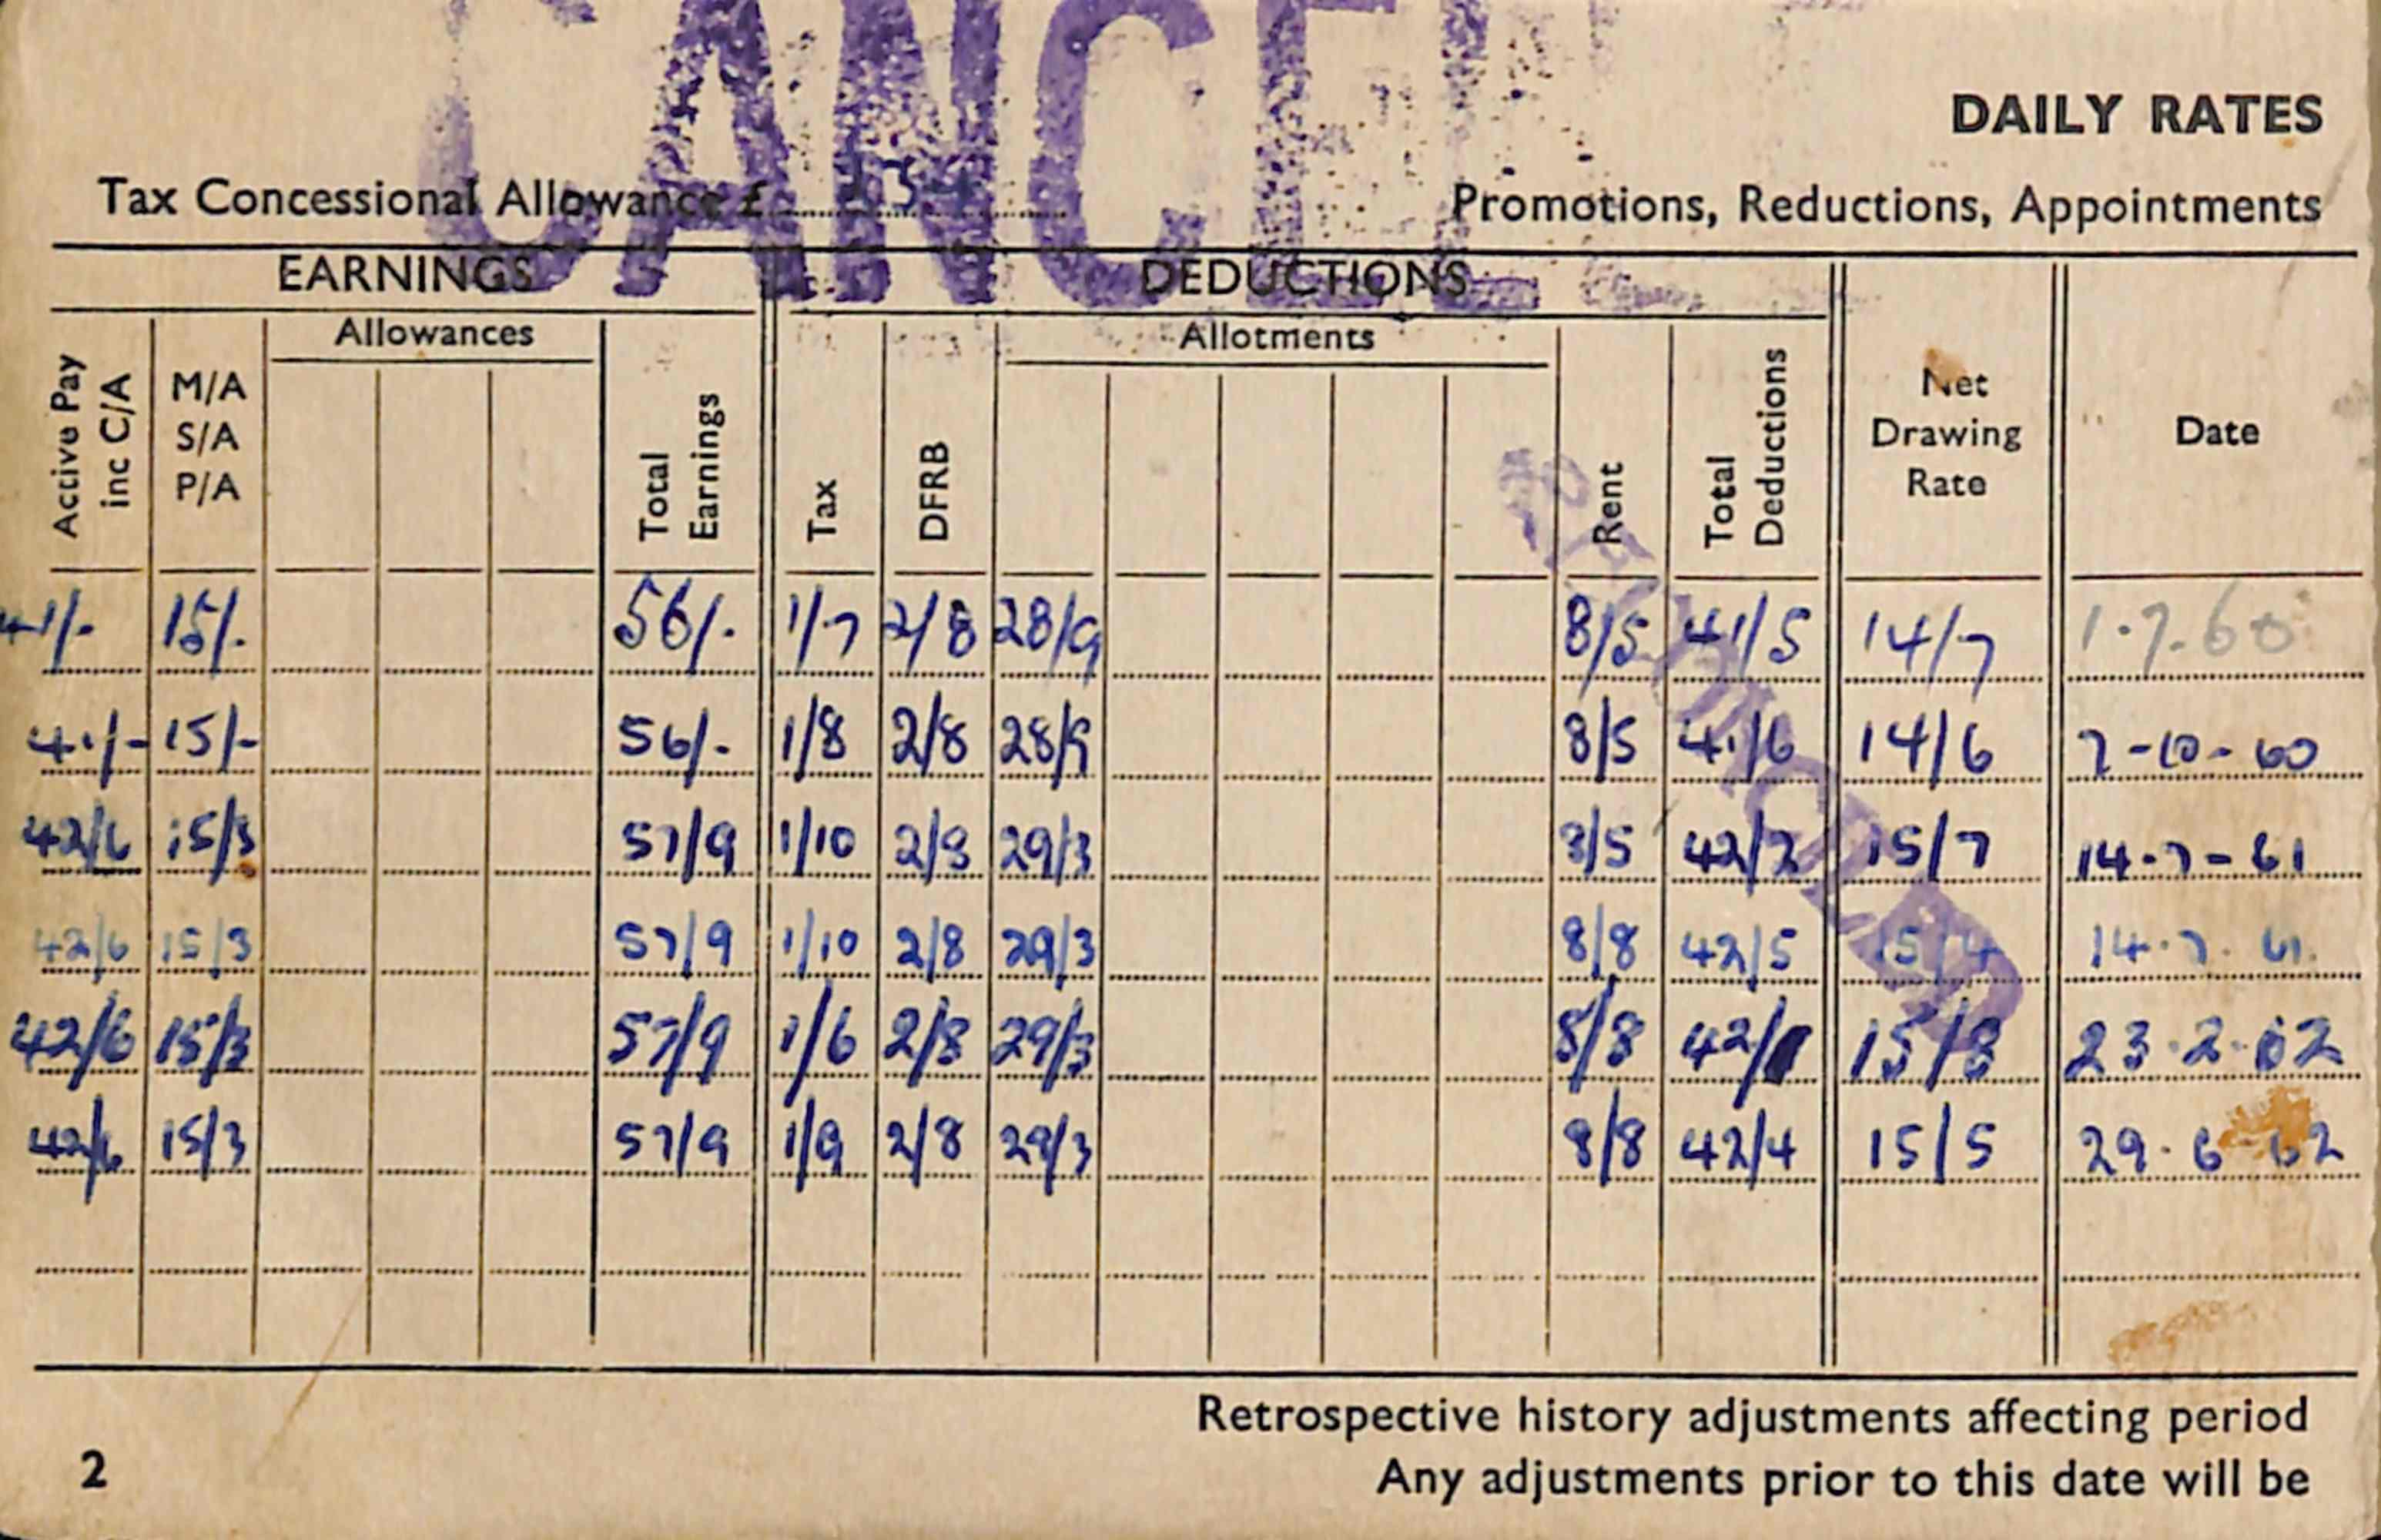 CANCEL
DAILY RATES
Tax Concessional Allowance £
Promotions, Reductions, Appointments
EARNINGS DEDUCTIONS
Allowances Allotments
Active Pay inc C/A M/A S/A P/A Total Earnings Tax DFRB Rent Total Deductions Net Drawing Rate Date
41/- 15/- 56/- 1/7 2/8 28/9 8/5 41/5 14/7 1.7.60
41/- 15/- 56/- 1/8 2/8 28/9 8/5 41/6 14/6 7-10-60
42/6 15/3 57/9 1/10 2/8 29/3 8/5 42/2 15/7 14.7-61
42/6 15/3 57/9 1/10 2/8 29/3 8/8 42/5 15/4 14.7.61.
42/6 15/3 57/9 1/6 2/8 29/3 8/8 42/1 15/8 23.2.62
42/6 15/3 57/9 1/9 2/8 29/3 8/8 42/4 15/5 29.6.62
Retrospective history adjustments affecting period
2 Any adjustments prior to this date will be